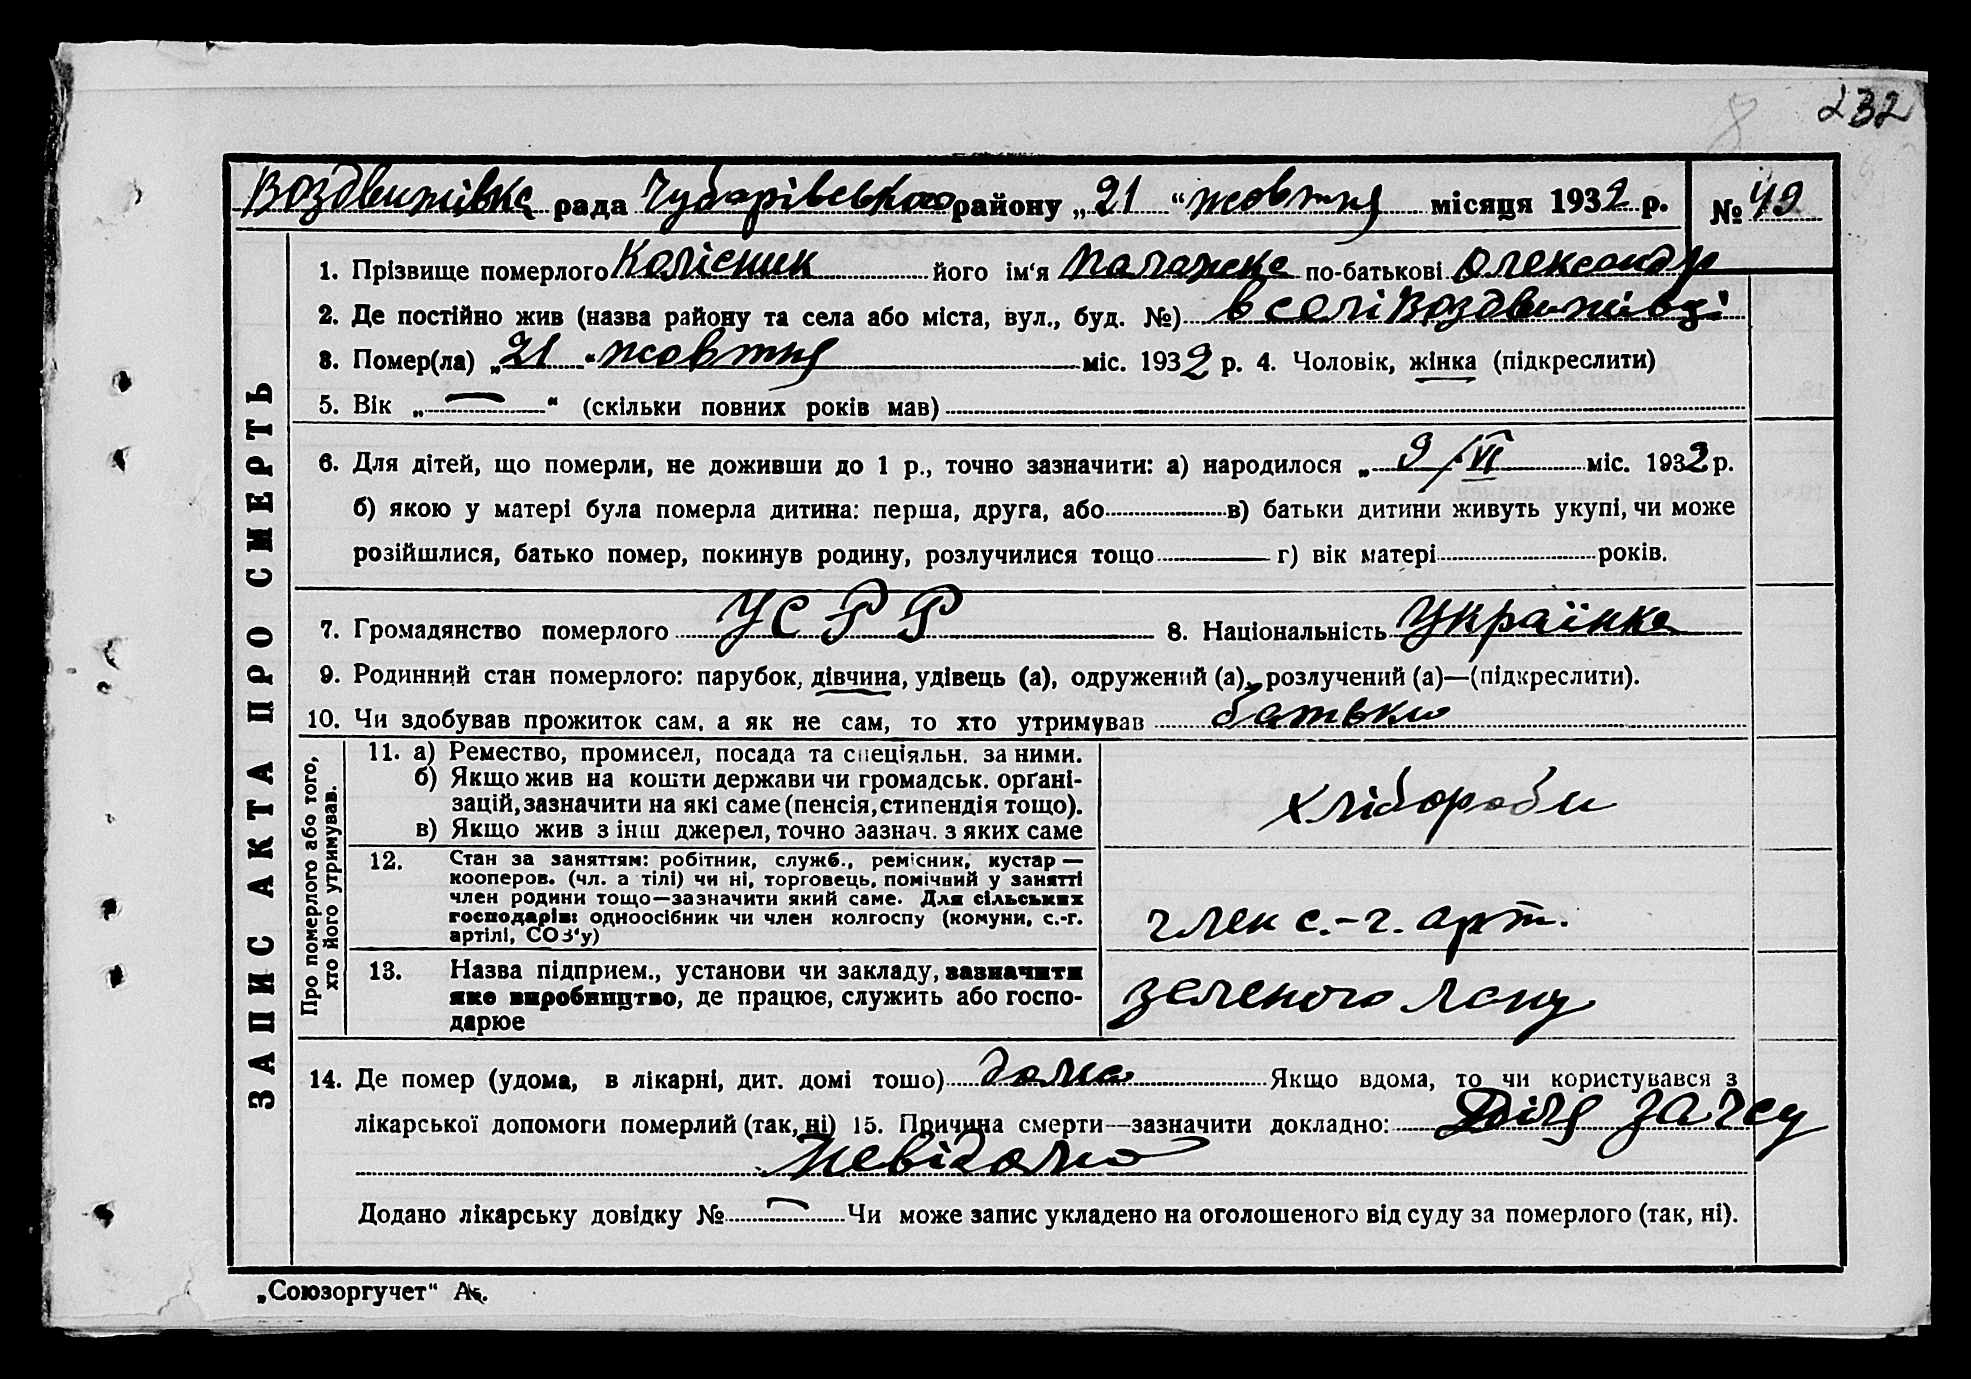 232
Воздвижівка рада Чубарівського району „21“ жовтня місяця 1932 р. № 49
ЗАПИС АКТА ПРО СМЕРТЬ
1. Прізвище померлого Колісник його ім‘я Палажка по-батькові Олександр
2. Де постійно жив (назва району та села або міста, вул., буд. №) в селі Воздвижівці
3. Помер(ла) „21“ жовтня міс. 1932 р. 4. Чоловік, жінка (підкреслити)
5. Вік „—“ (скільки повних років мав)
6. Для дітей, що померли, не доживши до 1 р., точно зазначити: а) народилося „9/VI міс. 1932 р.
б) якою у матері була померла дитина: перша, друга, або в) батьки дитини живуть укупі, чи може
розійшлися, батько помер, покинув родину, розлучилися тощо г) вік матері років.
7. Громадянство померлого УСРР 8. Національність Українка
9. Родинний стан померлого: парубок, дівчина, удівець (а), одружений (а), розлучений (а)—(підкреслити).
10. Чи здобував прожиток сам, а як не сам, то хто утримував батьки
Про померлого або того,
хто його утримував.
11. а) Ремество, промисел, посада та спеціяльн. за ними.
б) Якщо жив на кошти держави чи громадськ. орґані-
зацій, зазначити на які саме (пенсія, стипендія тощо).
в) Якщо жив з інш джерел, точно зазнач. з яких саме
хлібороби
12. Стан за заняттям: робітник, служб., ремісник, кустар —
кооперов. (чл. а тілі) чи ні, торговець, помічний у занятті
член родини тощо—зазначити який саме. Для сільських
господарів: одноосібник чи член колгоспу (комуни, с.-г.
артілі, СОЗ‘у)
член с.-г. арт.
13. Назва підприєм., установи чи закладу, зазначити
яке виробництво, де працює, служить або госпо-
дарює
зеленого лану
14. Де помер (удома, в лікарні, дит. домі тошо) дома Якщо вдома, то чи користувався з
лікарської допомоги померлий (так, ні) 15. Причина смерти—зазначити докладно: Для загсу
Невідомо
Додано лікарську довідку № — Чи може запис укладено на оголошеного від суду за померлого (так, ні).
„Союзоргучет“